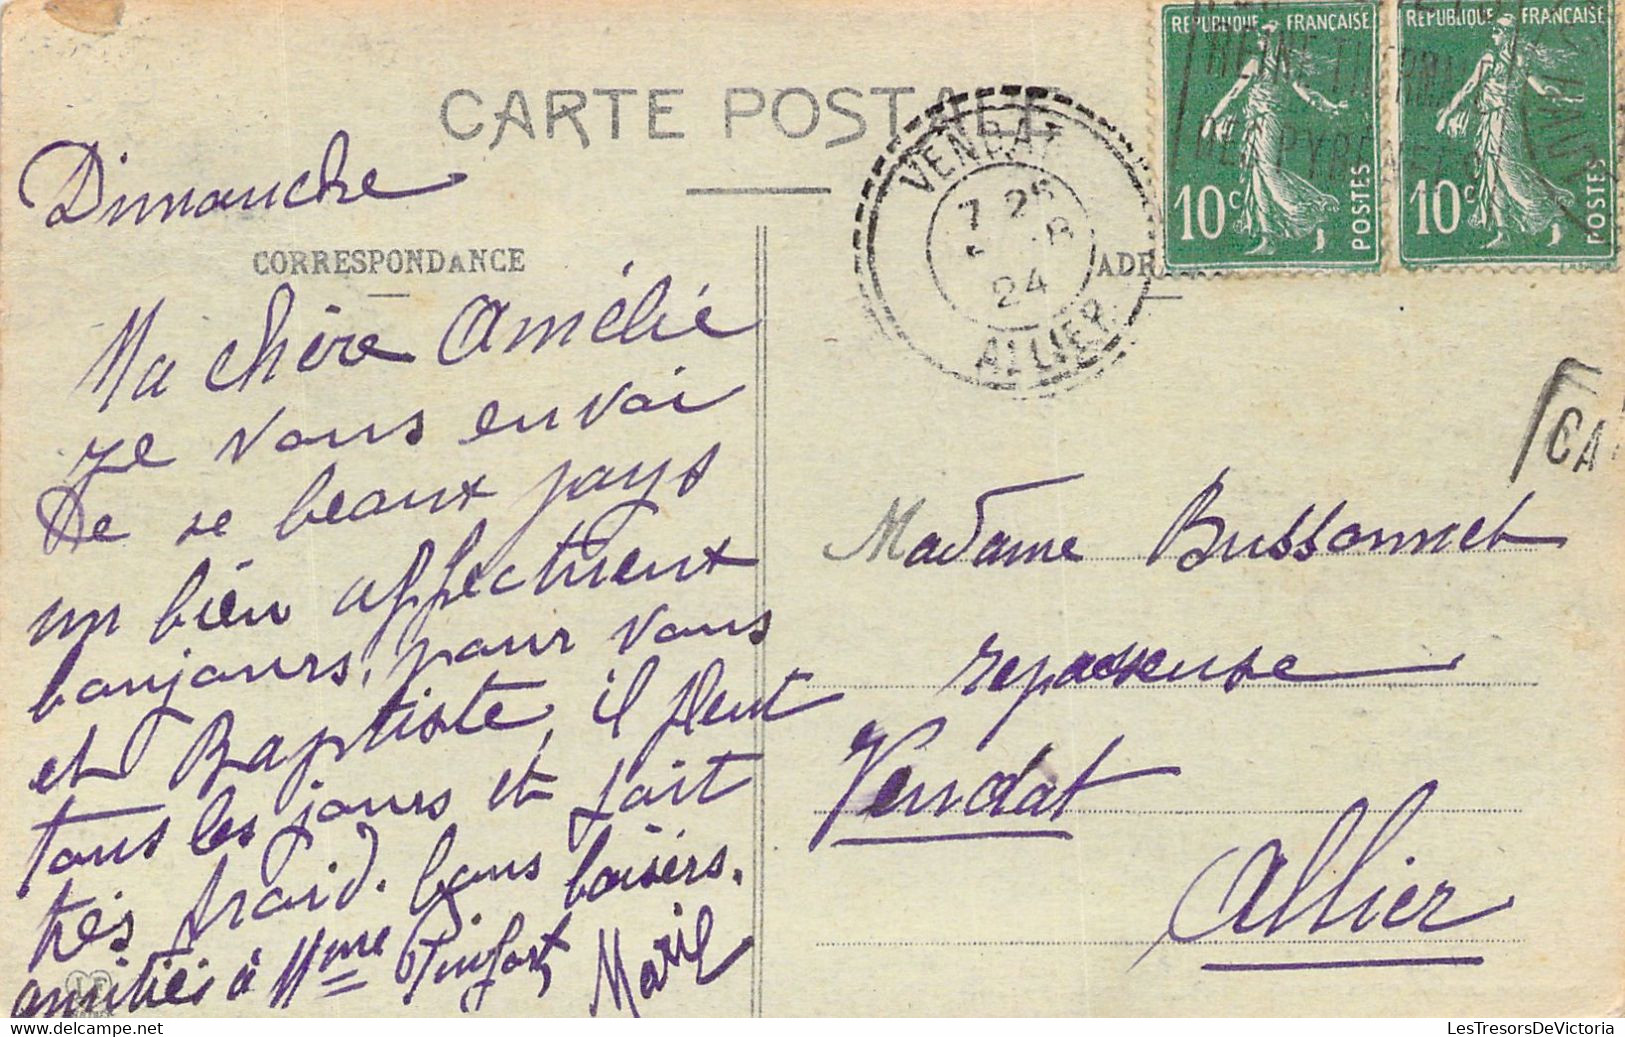 CARTE POSTALE
CORRESPONDANCE
Dimanche
Ma chère Amélie
Je vous envoi
de se beaux pays
un bien affectueux
bonjours, pour vous
et Baptiste, il pleut
tous les jours et fait
très froid. bons baisers.
amitiés à Mme
Marie
REPUBLIQUE FRANÇAISE
10c POSTES
REPUBLIQUE FRANÇAISE
10c POSTES
REINE THERMALE
DES PYRENEES
VENDAT
24
ALLIER
CA
Madame Bussonnet
repasseuse
Vendat
Allier
LesTresorsDeVictoria
www.delcampe.net